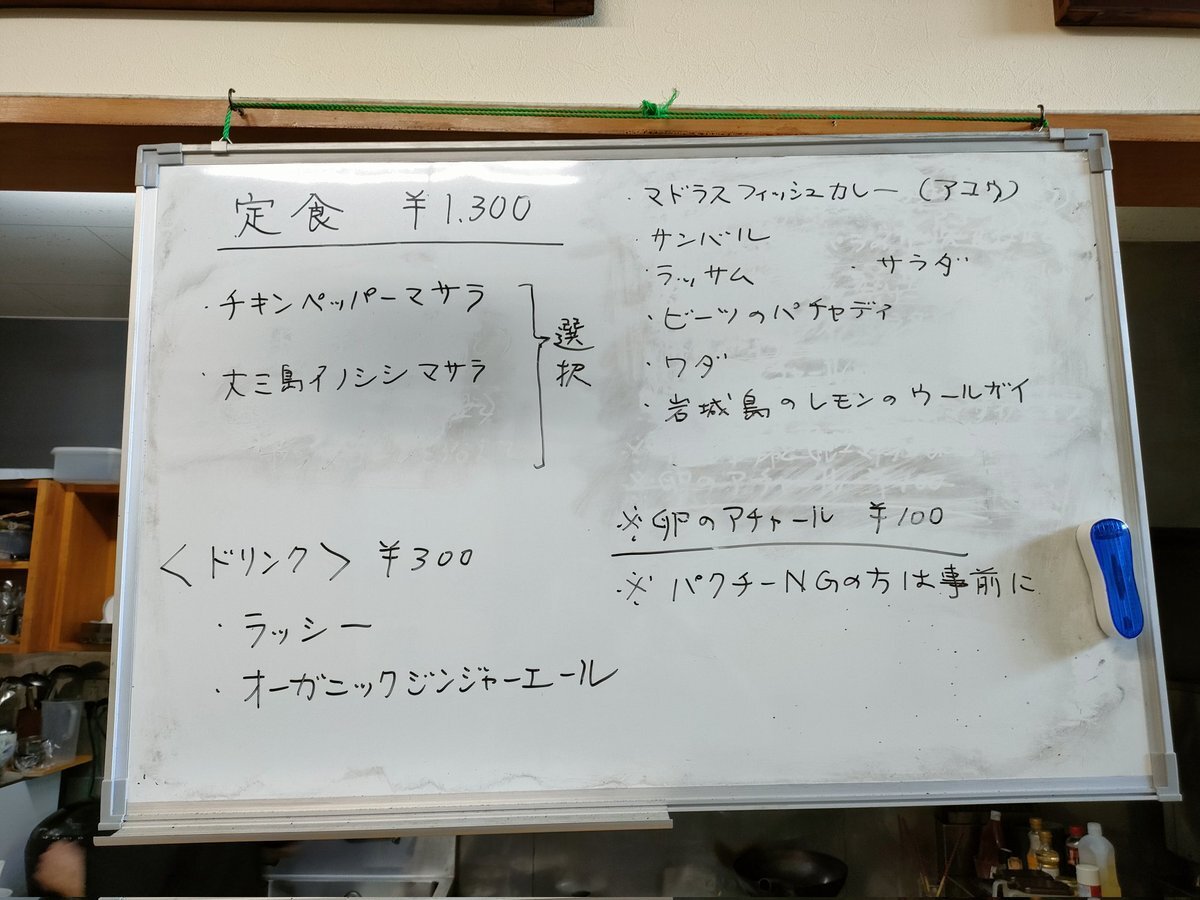 定食 ¥1.300
・チキンペッパーマサラ
・大三島イノシシマサラ
選択
〈ドリンク〉 ¥300
・ラッシー
・オーガニックジンジャーエール
・マドラスフィッシュカレー (アユウ)
・サンバル
・ラッサム ・サラダ
・ビーツのパチャディ
・ワダ
・岩城島のレモンのウールガイ
※卵のアチャール ¥100
※パクチーNGの方は事前に